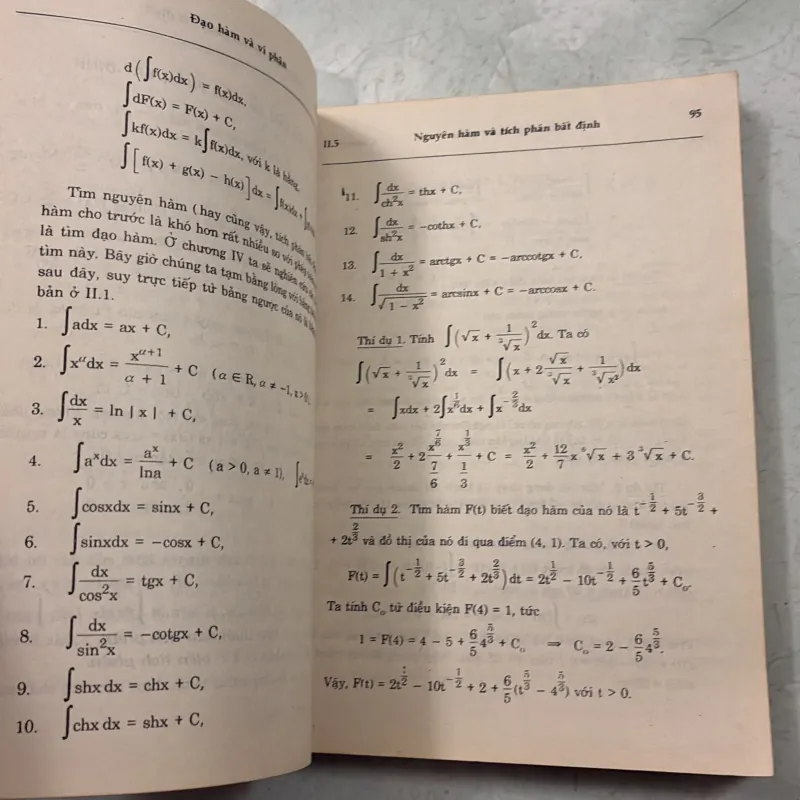 Đạo hàm và vi phân
d(∫f(x)dx) = f(x)dx.
∫dF(x) = F(x) + C,
∫kf(x)dx = k∫f(x)dx, với k là hằng,
∫[f(x) + g(x) − h(x)]dx = ∫f(x)dx +
Tìm nguyên hàm (hay cũng vậy, tích phân
hàm cho trước là khó hơn rất nhiều so với phép
là tìm đạo hàm. Ở chương IV ta sẽ nghiên cứu
tìm này. Bây giờ chúng ta tạm bằng lòng với bảng
sau đây, suy trực tiếp từ bảng ngược của nó là
bản ở II.1.
1. ∫adx = ax + C,
2. ∫x^α dx = x^(α+1)/(α + 1) + C (α ∈ R, α ≠ −1, x > 0),
3. ∫dx/x = ln | x | + C,
4. ∫a^x dx = a^x/lna + C (a > 0, a ≠ 1),
5. ∫cosxdx = sinx + C,
6. ∫sinxdx = −cosx + C,
7. ∫dx/cos²x = tgx + C,
8. ∫dx/sin²x = −cotgx + C,
9. ∫shx dx = chx + C,
10. ∫chx dx = shx + C,
II.5 Nguyên hàm và tích phân bất định 95
11. ∫dx/ch²x = thx + C,
12. ∫dx/sh²x = −cothx + C,
13. ∫dx/(1 + x²) = arctgx + C = −arccotgx + C,
14. ∫dx/√(1 − x²) = arcsinx + C = −arccosx + C.
Thí dụ 1. Tính ∫(√x + 1/³√x)²dx. Ta có
∫(√x + 1/³√x)²dx = ∫(x + 2√x/³√x + 1/³√x²)dx
= ∫xdx + 2∫x^(1/6)dx + ∫x^(−2/3)dx
= x²/2 + 2 x^(7/6)/(7/6) + x^(1/3)/(1/3) + C = x²/2 + 12/7 x ⁶√x + 3 ³√x + C.
Thí dụ 2. Tìm hàm F(t) biết đạo hàm của nó là t^(−1/2) + 5t^(−3/2) +
+ 2t^(2/3) và đồ thị của nó đi qua điểm (4, 1). Ta có, với t > 0,
F(t) = ∫(t^(−1/2) + 5t^(−3/2) + 2t^(2/3))dt = 2t^(1/2) − 10t^(−1/2) + 6/5 t^(5/3) + C₀.
Ta tính C₀ từ điều kiện F(4) = 1, tức
1 = F(4) = 4 − 5 + 6/5 4^(5/3) + C₀ ⇒ C₀ = 2 − 6/5 4^(5/3).
Vậy, F(t) = 2t^(1/2) − 10t^(−1/2) + 2 + 6/5 (t^(5/3) − 4^(5/3)) với t > 0.